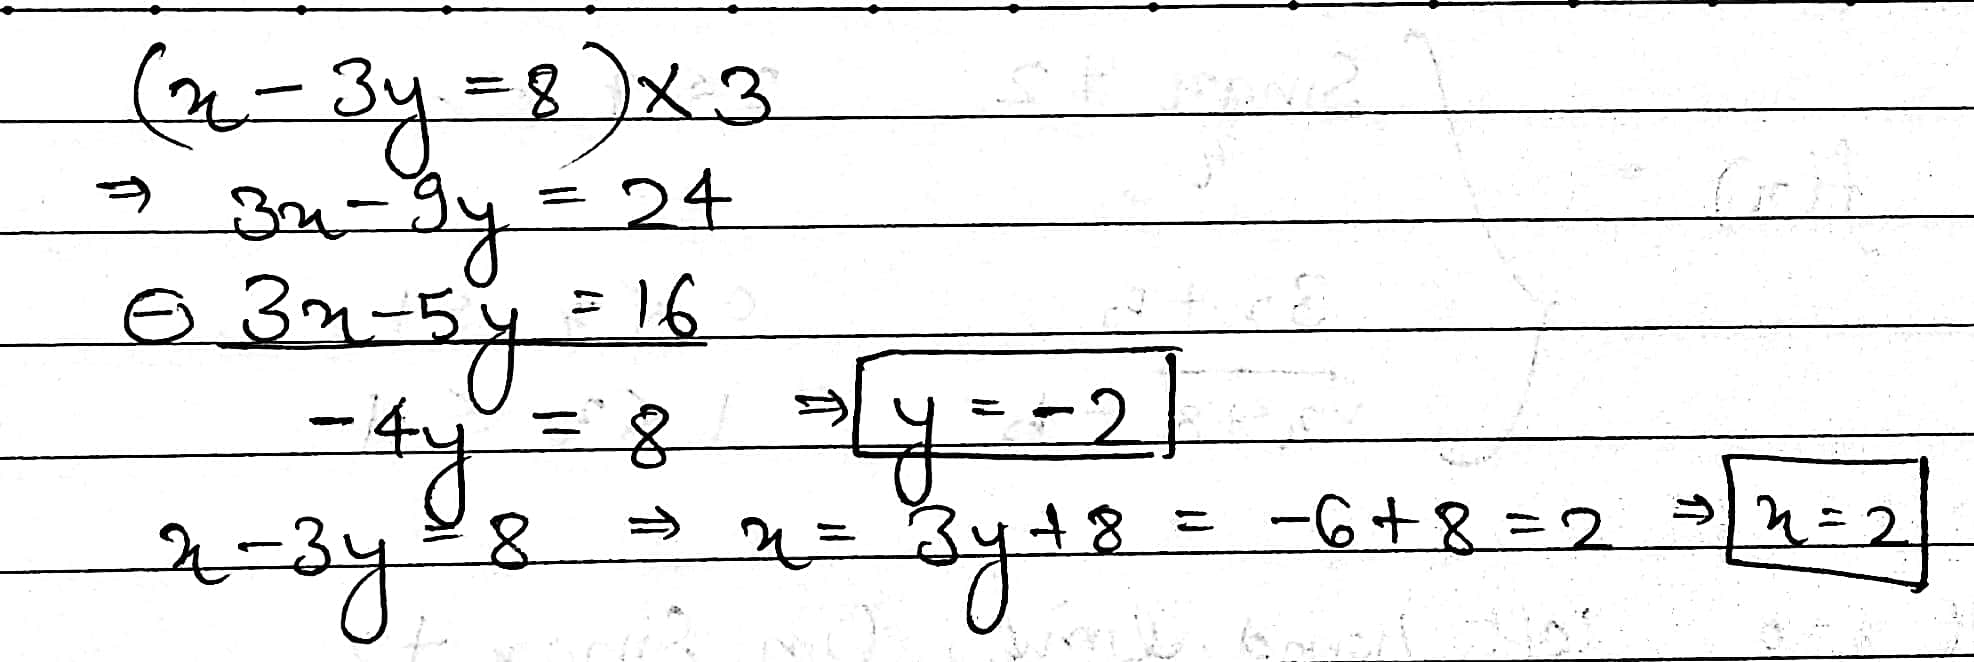 (x - 3y = 8) × 3
⇒ 3x - 9y = 24
⊖ 3x - 5y = 16
-4y = 8 ⇒ y = -2
x - 3y = 8 ⇒ x = 3y + 8 = -6 + 8 = 2 ⇒ x = 2